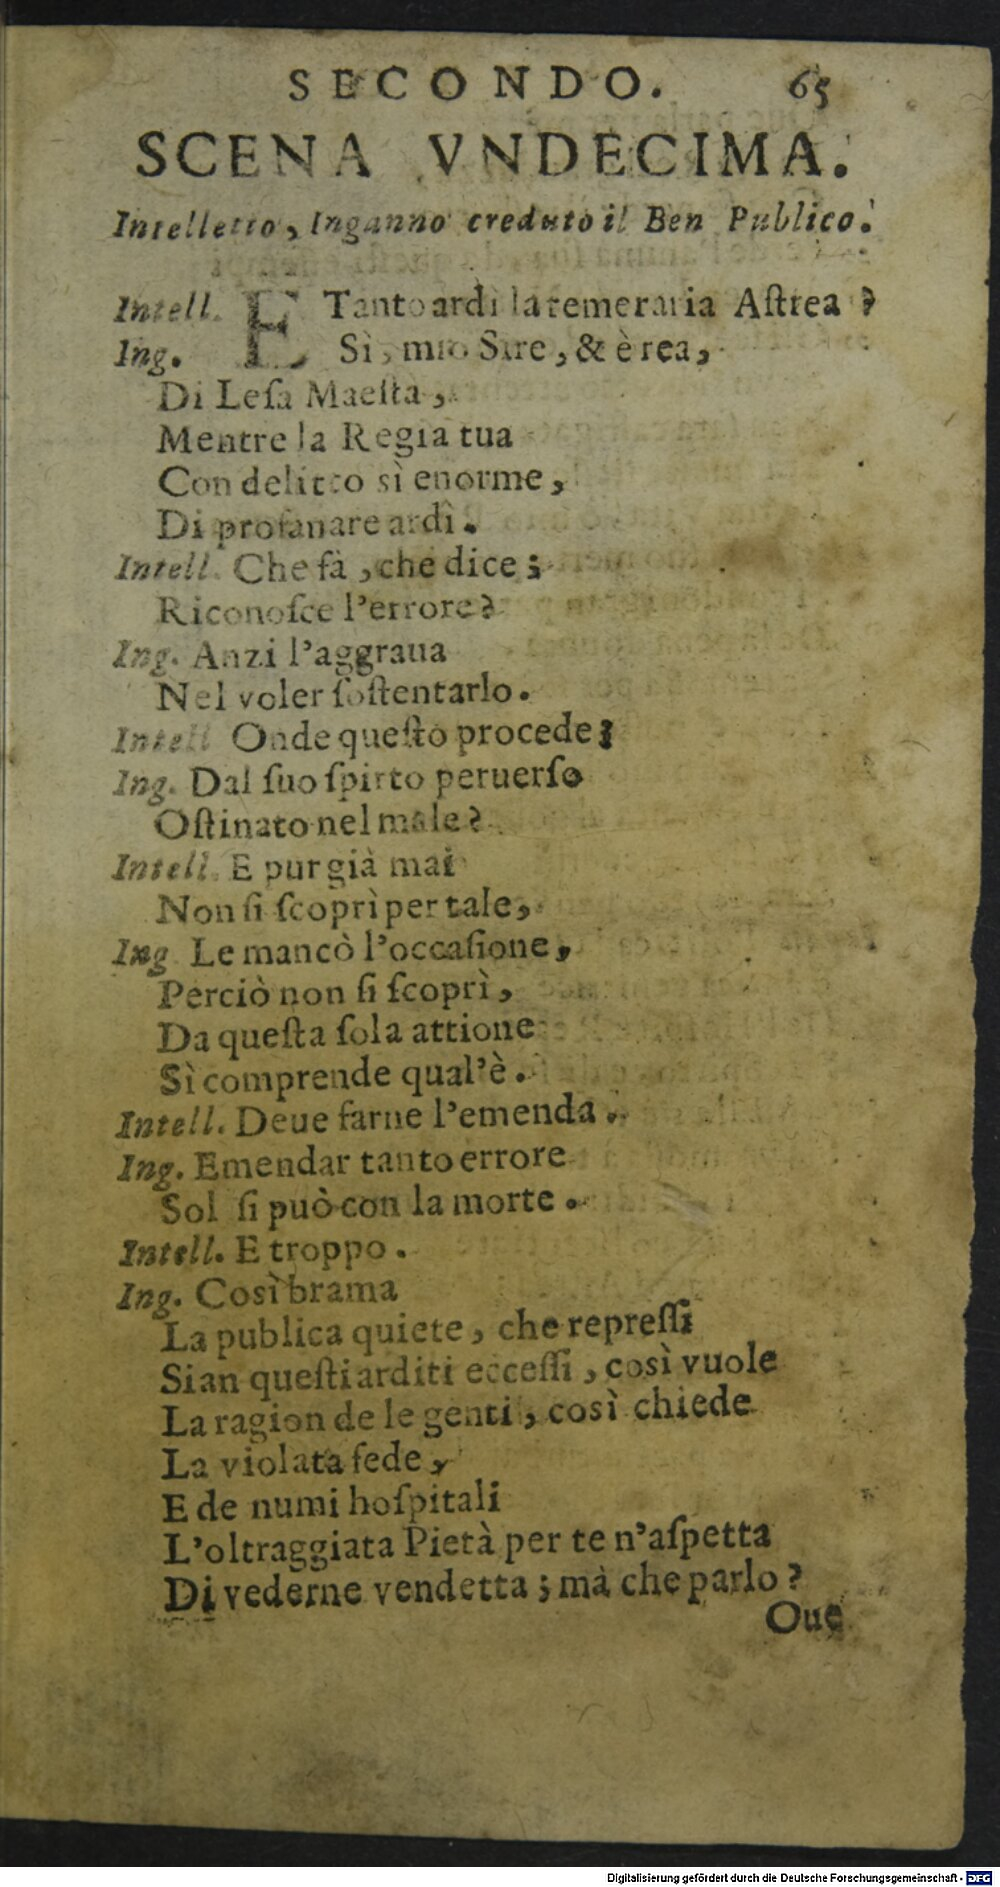 SECONDO. 65
SCENA VNDECIMA.
Intelletto, Inganno creduto il Ben Publico.
Intell. E Tanto ardì la temeraria Aſtrea?
Ing. Sì, mio Sire, & è rea,
Di Leſa Maeſta,
Mentre la Regia tua
Con delitto sì enorme,
Di profanare ardì.
Intell. Che fà, che dice;
Riconoſce l'errore?
Ing. Anzi l'aggraua
Nel voler ſoſtentarlo.
Intell Onde queſto procede;
Ing. Dal ſuo ſpirto peruerſo
Oſtinato nel male?
Intell. E pur già mai
Non ſi ſcoprì per tale,
Ing Le mancò l'occaſione,
Perciò non ſi ſcoprì,
Da queſta ſola attione
Sì comprende qual'è.
Intell. Deue farne l'emenda.
Ing. Emendar tanto errore
Sol ſi può con la morte.
Intell. E troppo.
Ing. Così brama
La publica quiete, che repreſſi
Sian queſti arditi ecceſſi, così vuole
La ragion de le genti, così chiede
La violata fede,
E de numi hoſpitali
L'oltraggiata Pietà per te n'aſpetta
Di vederne vendetta; mà che parlo?
Oue
Digitalisierung gefördert durch die Deutsche Forschungsgemeinschaft - DFG